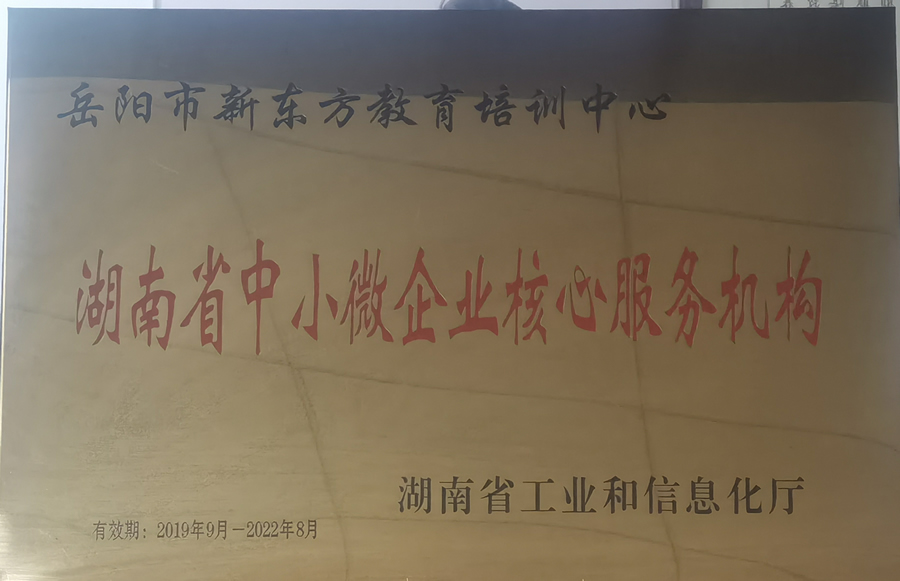 岳阳市新东方教育培训中心
湖南省中小微企业核心服务机构
湖南省工业和信息化厅
有效期：2019年9月－2022年8月